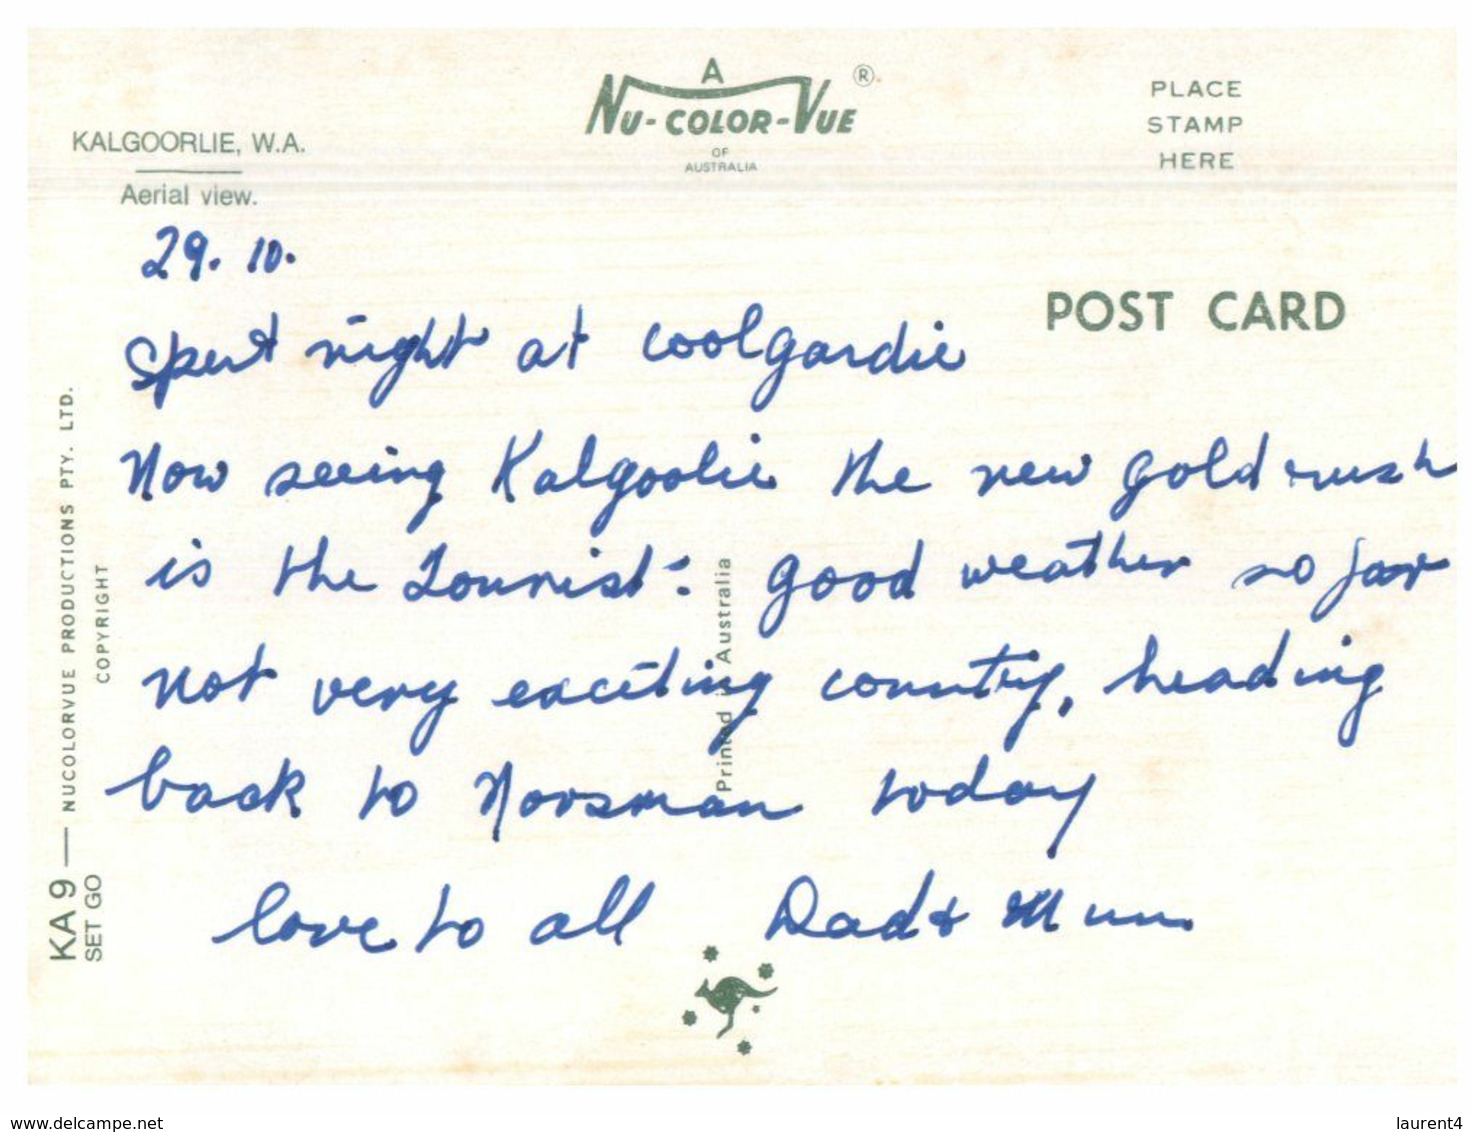 A
NU-COLOR-VUE ®
OF
AUSTRALIA
KALGOORLIE, W.A.
Aerial view.
PLACE
STAMP
HERE
POST CARD
29. 10.
Spent night at Coolgardie
Now seeing Kalgoolie the new gold rush
is the Tourist: good weather so far
not very exciting country, heading
back to Noosman today
love to all Dad & Mum.
KA 9 — NUCOLORVUE PRODUCTIONS PTY. LTD.
SET GO
COPYRIGHT
Printed in Australia
www.delcampe.net
laurent4